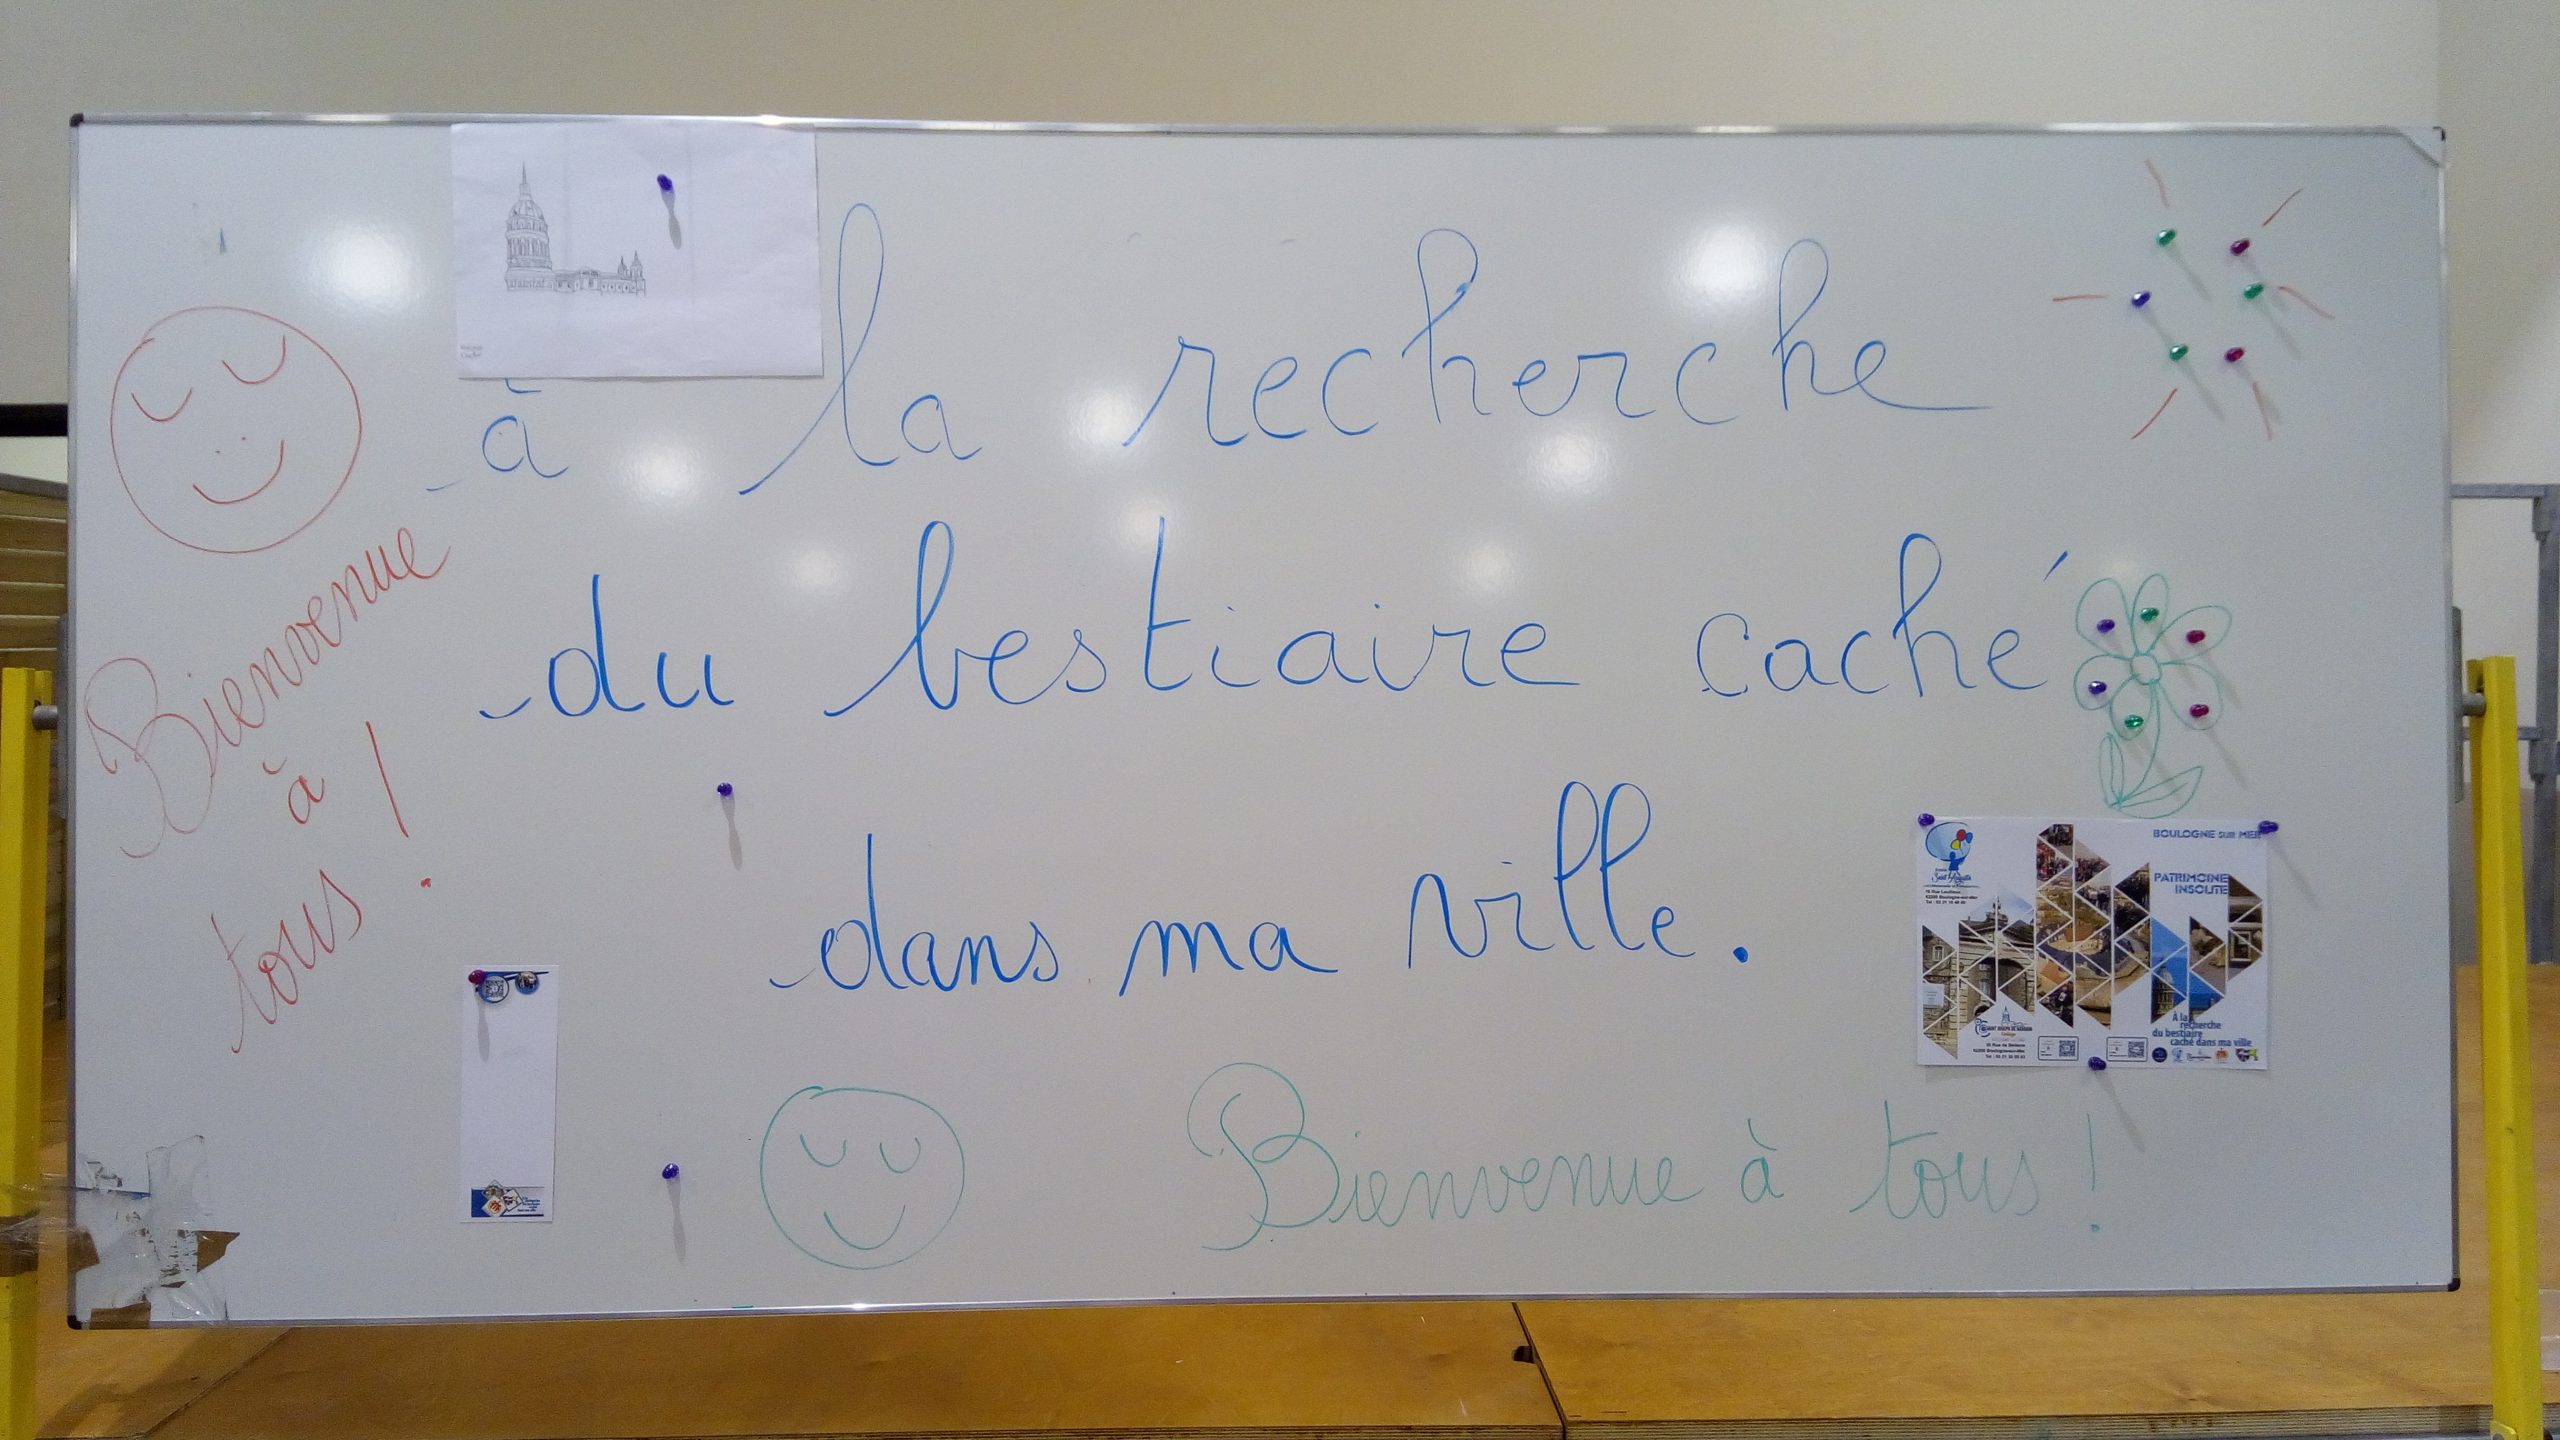 à la recherche
du bestiaire caché
dans ma ville.
Bienvenue
à
tous !
Bienvenue à tous !
BOULOGNE SUR MER
PATRIMOINE
INSOLITE
Saint Augustin
62200 Boulogne-sur-Mer
À la
recherche
du bestiaire
caché dans ma ville